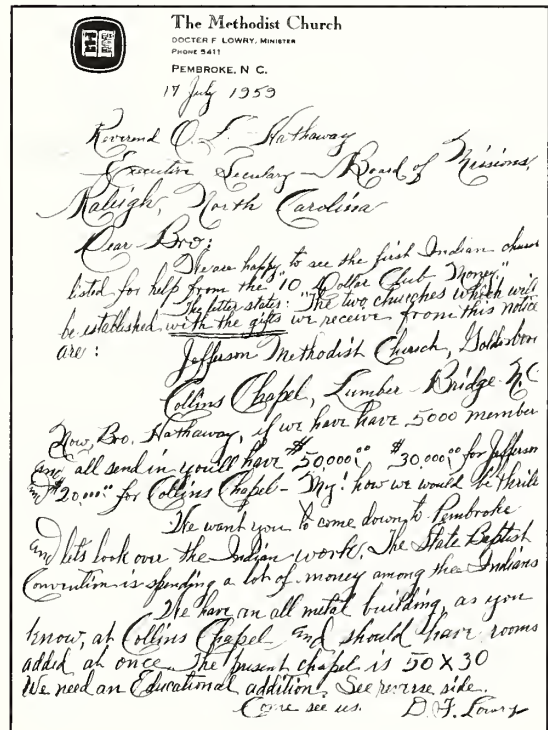 The Methodist Church
DOCTER F LOWRY, MINISTER
PHONE 5411
PEMBROKE, N C.
17 July 1959
Reverend O. L. Hathaway
Executive Secretary - Board of Missions,
Raleigh, North Carolina
Dear Bro:
We are happy to see the first Indian church
listed for help from the "10 Dollar Club Money."
The letter states: "The two churches which will
be established with the gifts we receive from this notice
are:
Jefferson Methodist Church, Goldsboro
Collins Chapel, Lumber Bridge N.C.
Now, Bro. Hathaway, if we have have 5000 member
and all send in you'll have $50,000.00 $30,000.00 for Jefferson
and $20,000.00 for Collins Chapel - My! how we would be thrill
We want you to come down to Pembroke
and lets look over the Indian work. The State Baptist
Convention is spending a lot of money among the Indians
We have an all metal building, as you
know, at Collins Chapel and should have rooms
added at once. The present chapel is 50 X 30
We need an Educational addition. See reverse side.
Come see us. D. F. Lowry